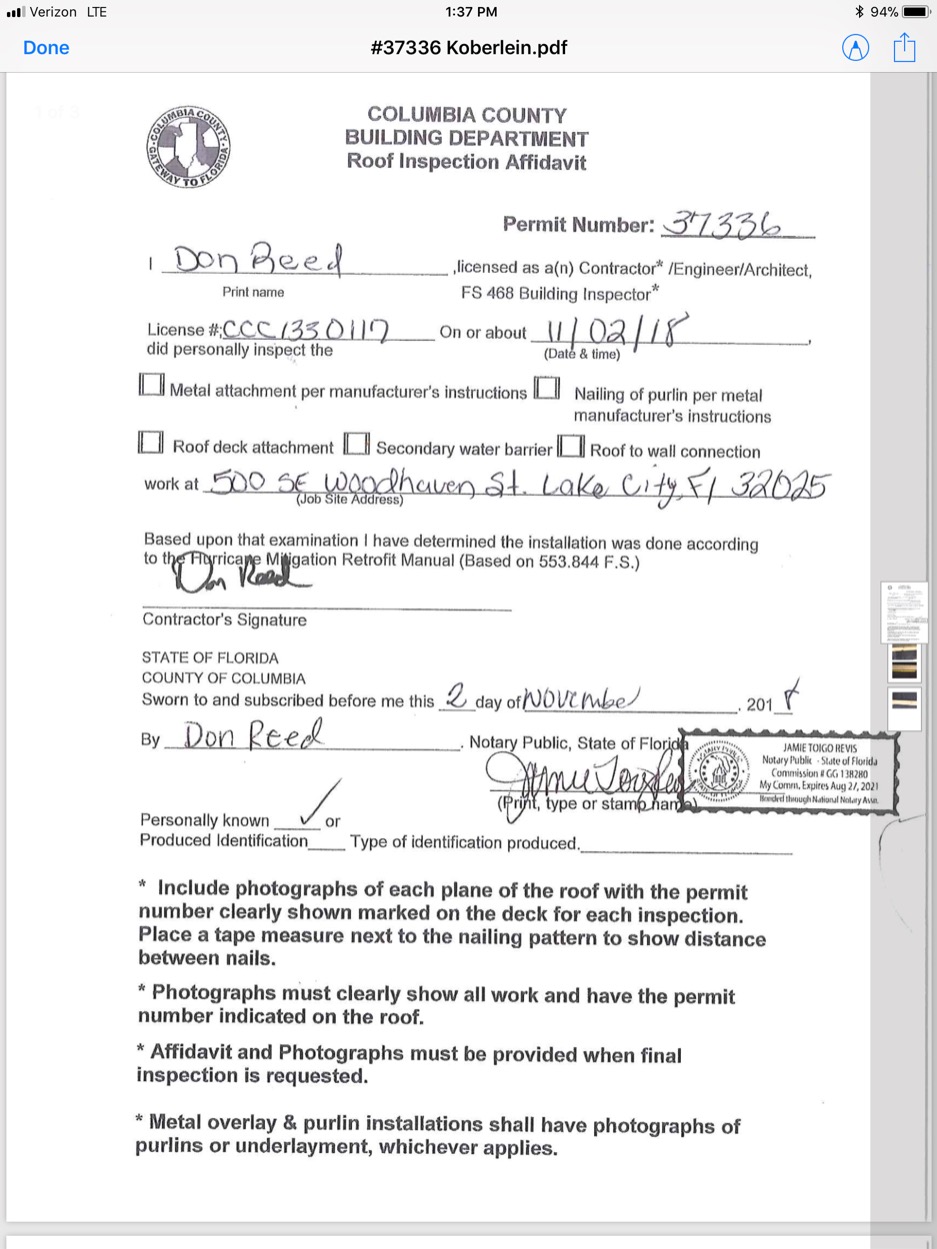 Verizon LTE 1:37 PM 94%
Done #37336 Koberlein.pdf
1 of 3
COLUMBIA COUNTY
GATEWAY TO FLORIDA
COLUMBIA COUNTY
BUILDING DEPARTMENT
Roof Inspection Affidavit
Permit Number: 37336
I Don Reed ,licensed as a(n) Contractor* /Engineer/Architect,
Print name FS 468 Building Inspector*
License #; CCC1330117 On or about 11/02/18 ,
did personally inspect the (Date & time)
Metal attachment per manufacturer's instructions Nailing of purlin per metal
manufacturer's instructions
Roof deck attachment Secondary water barrier Roof to wall connection
work at 500 SE Woodhaven St. Lake City, Fl 32025
(Job Site Address)
Based upon that examination I have determined the installation was done according
to the Hurricane Mitigation Retrofit Manual (Based on 553.844 F.S.)
Don Reed
Contractor's Signature
STATE OF FLORIDA
COUNTY OF COLUMBIA
Sworn to and subscribed before me this 2 day of November , 2018
By Don Reed . Notary Public, State of Florida
JAMIE TOIGO REVIS
Notary Public - State of Florida
Commission # GG 138280
My Comm. Expires Aug 27, 2021
Bonded through National Notary Assn.
(Print, type or stamp name)
Personally known ✓ or
Produced Identification____ Type of identification produced.
* Include photographs of each plane of the roof with the permit
number clearly shown marked on the deck for each inspection.
Place a tape measure next to the nailing pattern to show distance
between nails.
* Photographs must clearly show all work and have the permit
number indicated on the roof.
* Affidavit and Photographs must be provided when final
inspection is requested.
* Metal overlay & purlin installations shall have photographs of
purlins or underlayment, whichever applies.